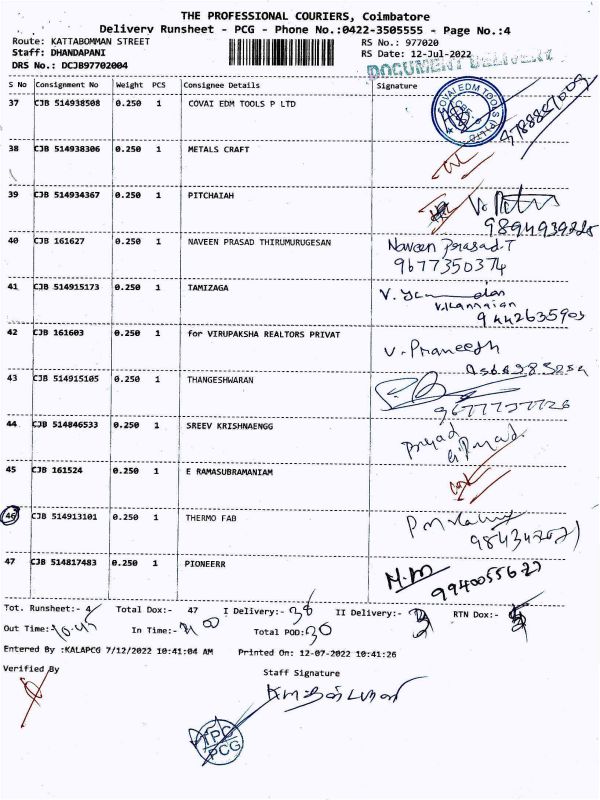 THE PROFESSIONAL COURIERS, Coimbatore
Delivery Runsheet - PCG - Phone No.:0422-3505555 - Page No.:4
Route: KATTABOMMAN STREET
RS No.: 977020
Staff: DHANDAPANI
RS Date: 12-Jul-2022
DRS No.: DCJB97702004
DOCUMENT DELIVERY
S No Consignment No Weight PCS Consignee Details Signature
37 CJB 514938508 0.250 1 COVAI EDM TOOLS P LTD
COVAI EDM TOOLS (P) LTD
38 CJB 514938306 0.250 1 METALS CRAFT
39 CJB 514934367 0.250 1 PITCHAIAH
40 CJB 161627 0.250 1 NAVEEN PRASAD THIRUMURUGESAN Naveen Prasad.T
9677350374
41 CJB 514915173 0.250 1 TAMIZAGA
V.Kannaian
9442635903
42 CJB 161603 0.250 1 for VIRUPAKSHA REALTORS PRIVAT
V. Praneesh
43 CJB 514915105 0.250 1 THANGESHWARAN
44 CJB 514846533 0.250 1 SREEV KRISHNAENGG
Prasad
45 CJB 161524 0.250 1 E RAMASUBRAMANIAM
46 CJB 514913101 0.250 1 THERMO FAB
47 CJB 514817483 0.250 1 PIONEERR
Tot. Runsheet:- 4 Total Dox:- 47 I Delivery:- 38 II Delivery:- RTN Dox:-
Out Time:- 10.45 In Time:- Total POD: 30
Entered By :KALAPCG 7/12/2022 10:41:04 AM Printed On: 12-07-2022 10:41:26
Verified By Staff Signature
TPC
PCG